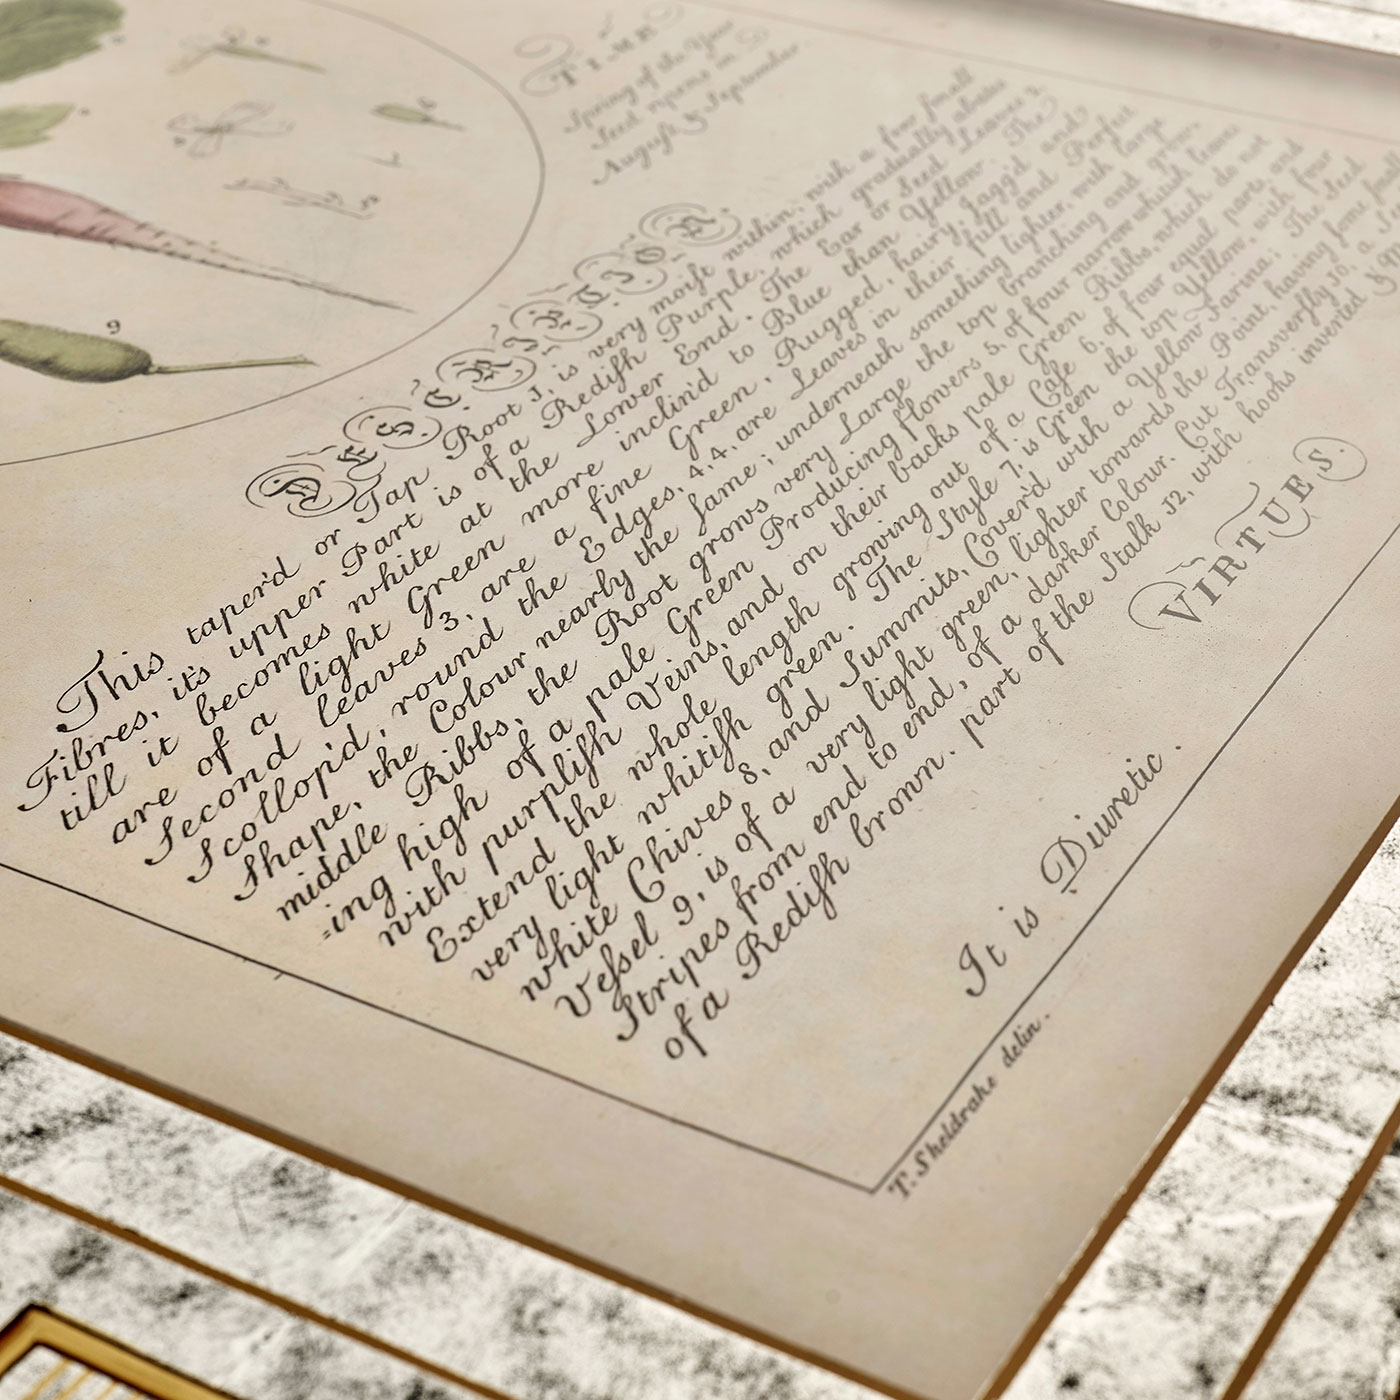 9
TIME
Spring of the Year
Seed ripens in
August & September.
DESCRIPTION
This taper'd or Tap Root 1, is very moiſt within, with a few ſmall
Fibres, it's upper Part is of a Rediſh Purple, which gradually abates
till it becomes white at the Lower End. The Ear or Seed Leaves 2,
are of a light Green more inclin'd to Blue than Yellow. The
Second leaves 3, are a fine Green, Rugged, hairy, Jagg'd and
Scollop'd, round the Edges, 4,4, are Leaves in their full and Perfect
Shape, the Colour nearly the ſame; underneath ſomething lighter, with large
middle Ribbs, the Root grows very Large the top branching and grow=
=ing high of a pale Green Producing flowers 5, of four narrow whitiſh leaves
with purpliſh Veins, and on their backs pale Green Ribbs, which do not
Extend the whole length growing out of a Caſe 6, of four equal parts and
very light whitiſh green. The Style 7, is Green the top Yellow, with four
white Chives 8, and Summits, Cover'd with a Yellow Farina; The Seed
Veſsel 9, is of a very light green, lighter towards the Point, having ſome ſmall
Stripes from end to end, of a darker Colour. Cut Tranſverſly 10, a
of a Rediſh brown. part of the Stalk 12, with hooks inverted &
VIRTUES.
It is Diuretic.
T. Sheldrake delin.